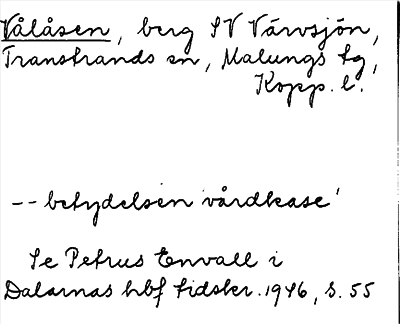 Vålåsen, berg SV Närvsjön,
Transtrands sn, Malungs tg,
Kopp. l.
-- betydelsen 'vårdkase'
Se Petrus Envall i
Dalarnas hbf tidskr. 1946, s. 55